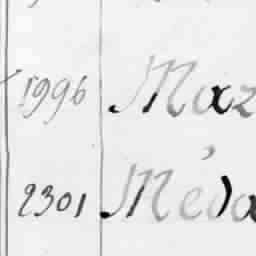 1996 Maz
2301 Méda